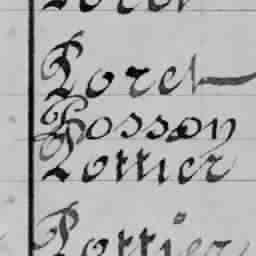 Poret
Posson
Pottier
Pottier